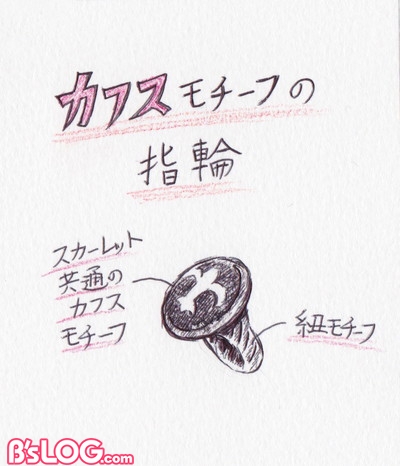 カフスモチーフの
指輪
スカーレット
共通の
カフス
モチーフ
紐モチーフ
B'sLOG.com